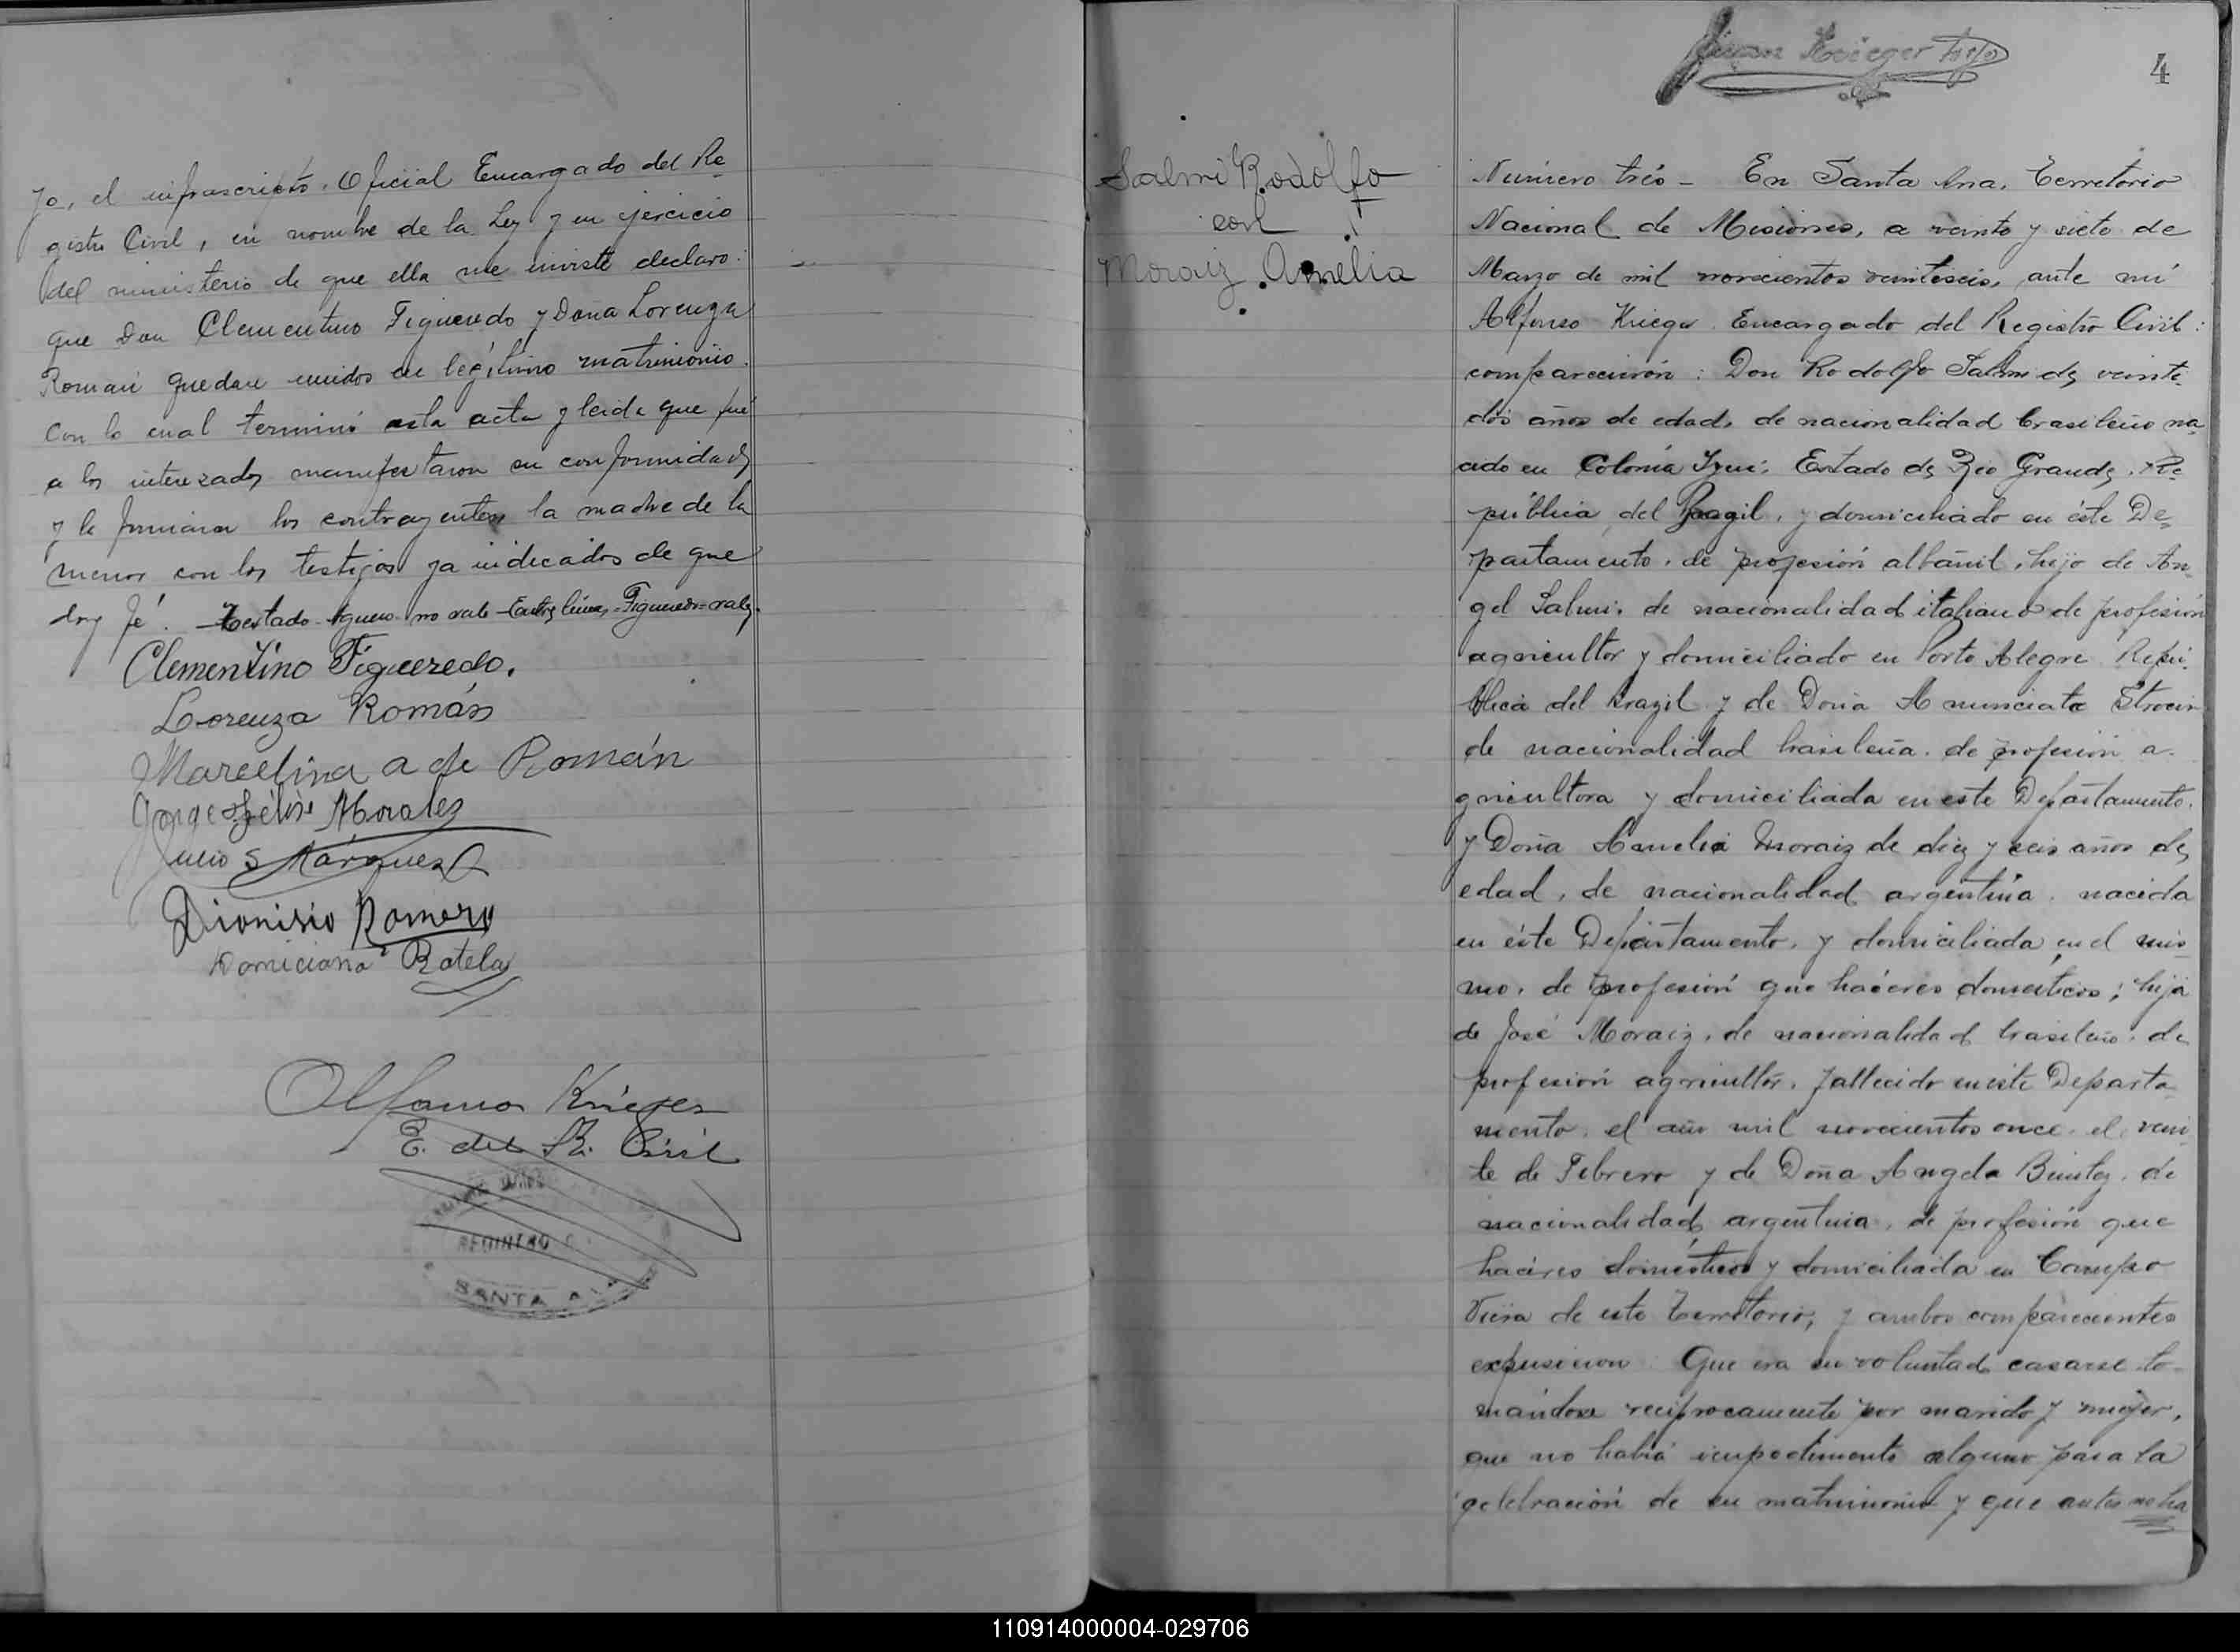 yo, el infrascripto Oficial Encargado del Re
gistro Civil, en nombre de la Ley y en ejercicio
del ministerio de que ella me inviste declaro:
que Don Clementino Figueredo y Doña Lorenza
Román quedan unidos en legítimo matrimonio.
Con lo cual terminó esta acta y leida que fué
a los interezados manifestaron su conformidad
y la firmaron los contrayentes la madre de la
menor con los testigos ya indicados de que
doy fé. Testado no vale Entre lineas=Figueredo=vale.
Clementino Figueredo.
Lorenza Román
Marcelina A de Román
Jorge Félix Morales
Julio S Márquez
Dionisio Romero
Domiciana Rotela
Alfonso Krieger
E. del R. Civil
REGISTRO C
SANTA A
Juan Krieger hijo
4
Salmi Rodolfo
con
Moraiz Amelia
Número trés - En Santa Ana, Territorio
Nacional de Misiones, a veinte y siete de
Marzo de mil novecientos veintiseis, ante mí
Alfonso Krieger Encargado del Registro Civil:
comparecieron: Don Rodolfo Salmi de veinte
dós años de edad, de nacionalidad brasileño na
cido en Colonia Iyuí, Estado de Rio Grande, Re
pública del Brazil, y domiciliado en éste De-
partamento, de profesión albañil, hijo de An-
gel Salmi, de nacionalidad italiano de profesión
agricultor y domiciliado en Porto Alegre Repú-
blica del Brazil y de Doña Anunciata
de nacionalidad brasileña, de profesión a-
gricultora y domiciliada en este Departamento.
y Doña Amelia Moraiz de diez y seis años de
edad, de nacionalidad argentina, nacida
en éste Departamento, y domiciliada en el mis-
mo, de profesión que haceres domésticos; hija
de José Moraiz, de nacionalidad brasileño, de
profesión agricultor, fallecido en éste Departa-
mento, el año mil novecientos once, el vein-
te de Febrero y de Doña Angela Benitez, de
nacionalidad argentina, de profesión que
haceres domésticos y domiciliada en Campo
Viera de este Territorio, y ambos comparecientes
expusieron Que era su voluntad casarse to-
mándose recíprocamente por marido y mujer,
que no había impedimento alguno para la
celebración de su matrimonio y que antes no ha
110914000004-029706